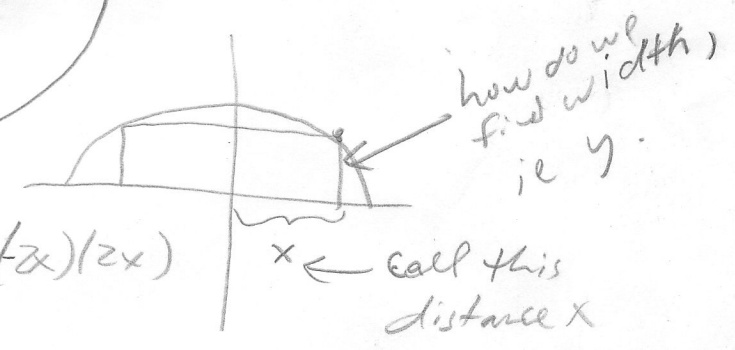 how do we
find width,
ie y.
-2x)(2x)
x ← call this
distance x